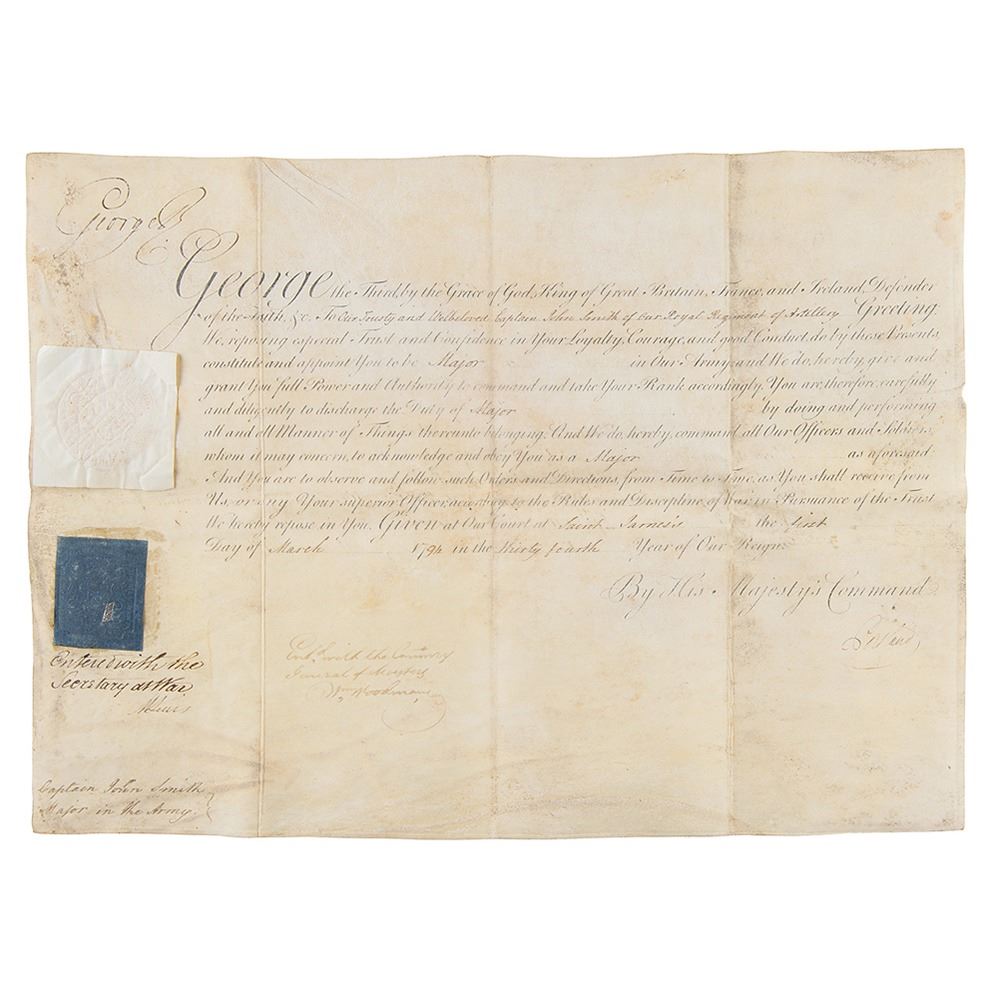 George R
George the Third, by the Grace of God, King of Great Britain, France, and Ireland, Defender
of the Faith, &c. To Our Trusty and Welbeloved Captain John Smith of Our Royal Regiment of Artillery Greeting:
We, reposing especial Trust and Confidence in Your Loyalty, Courage, and good Conduct, do by these Presents,
constitute and appoint You to be Major in Our Army and We do, hereby, give and
grant You full Power and Authority to command and take Your Rank accordingly. You are, therefore, carefully
and diligently to discharge the Duty of Major by doing and performing
all and all Manner of Things thereunto belonging. And We do, hereby, command all Our Officers and Soldiers,
whom it may concern, to acknowledge and obey You as a Major as aforesaid
And You are to observe and follow such Orders and Directions, from Time to Time, as You shall receive from
Us, or any Your superior Officer, according to the Rules and Discipline of War, in Pursuance of the Trust
We hereby repose in You. Given at Our Court at Saint James's the first
Day of March 1794 in the thirty fourth Year of Our Reign.
By His Majesty's Command
Entered with the
Secretary at War
MLewis
Entd. with the Commry
General of Musters
Wm. Woodman
Captain John Smith
Major in the Army.